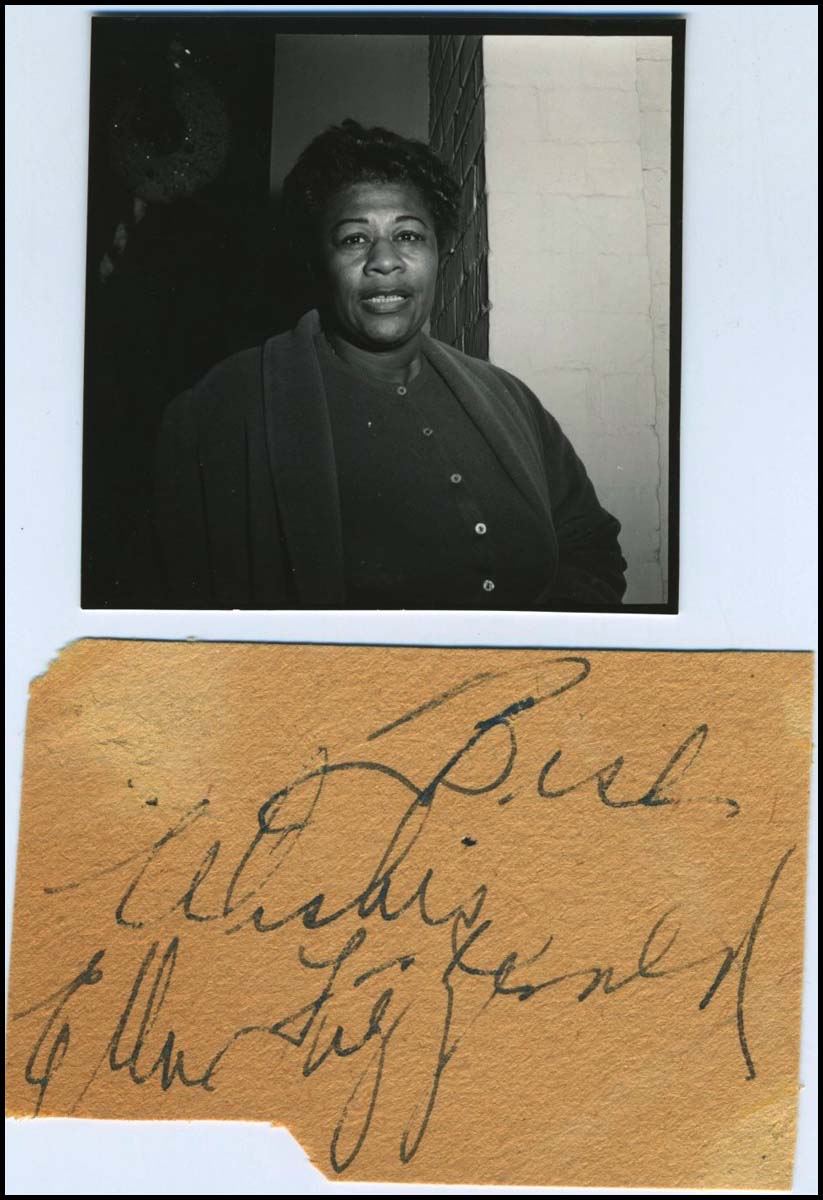 Best
Wishes
Ella Fitzgerald